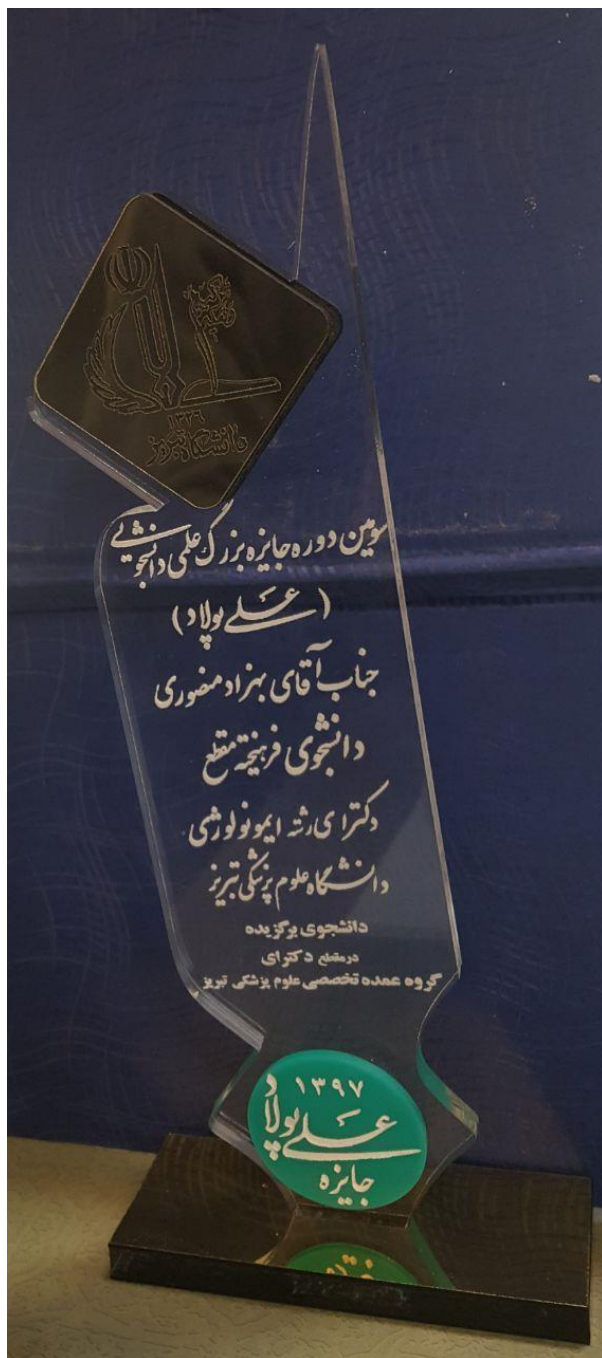 ۱۳۲۶
دانشگاه تبریز
سومین دوره جایزه بزرگ علمی دانشجویی
(علی پولاد)
جناب آقای بهزاد منصوری
دانشجوی فرهیخته مقطع
دکترای رشته ایمونولوژی
دانشگاه علوم پزشکی تبریز
دانشجوی برگزیده
در مقطع دکترای
گروه عمده تخصصی علوم پزشکی تبریز
۱۳۹۷
علی پولاد
جایزه